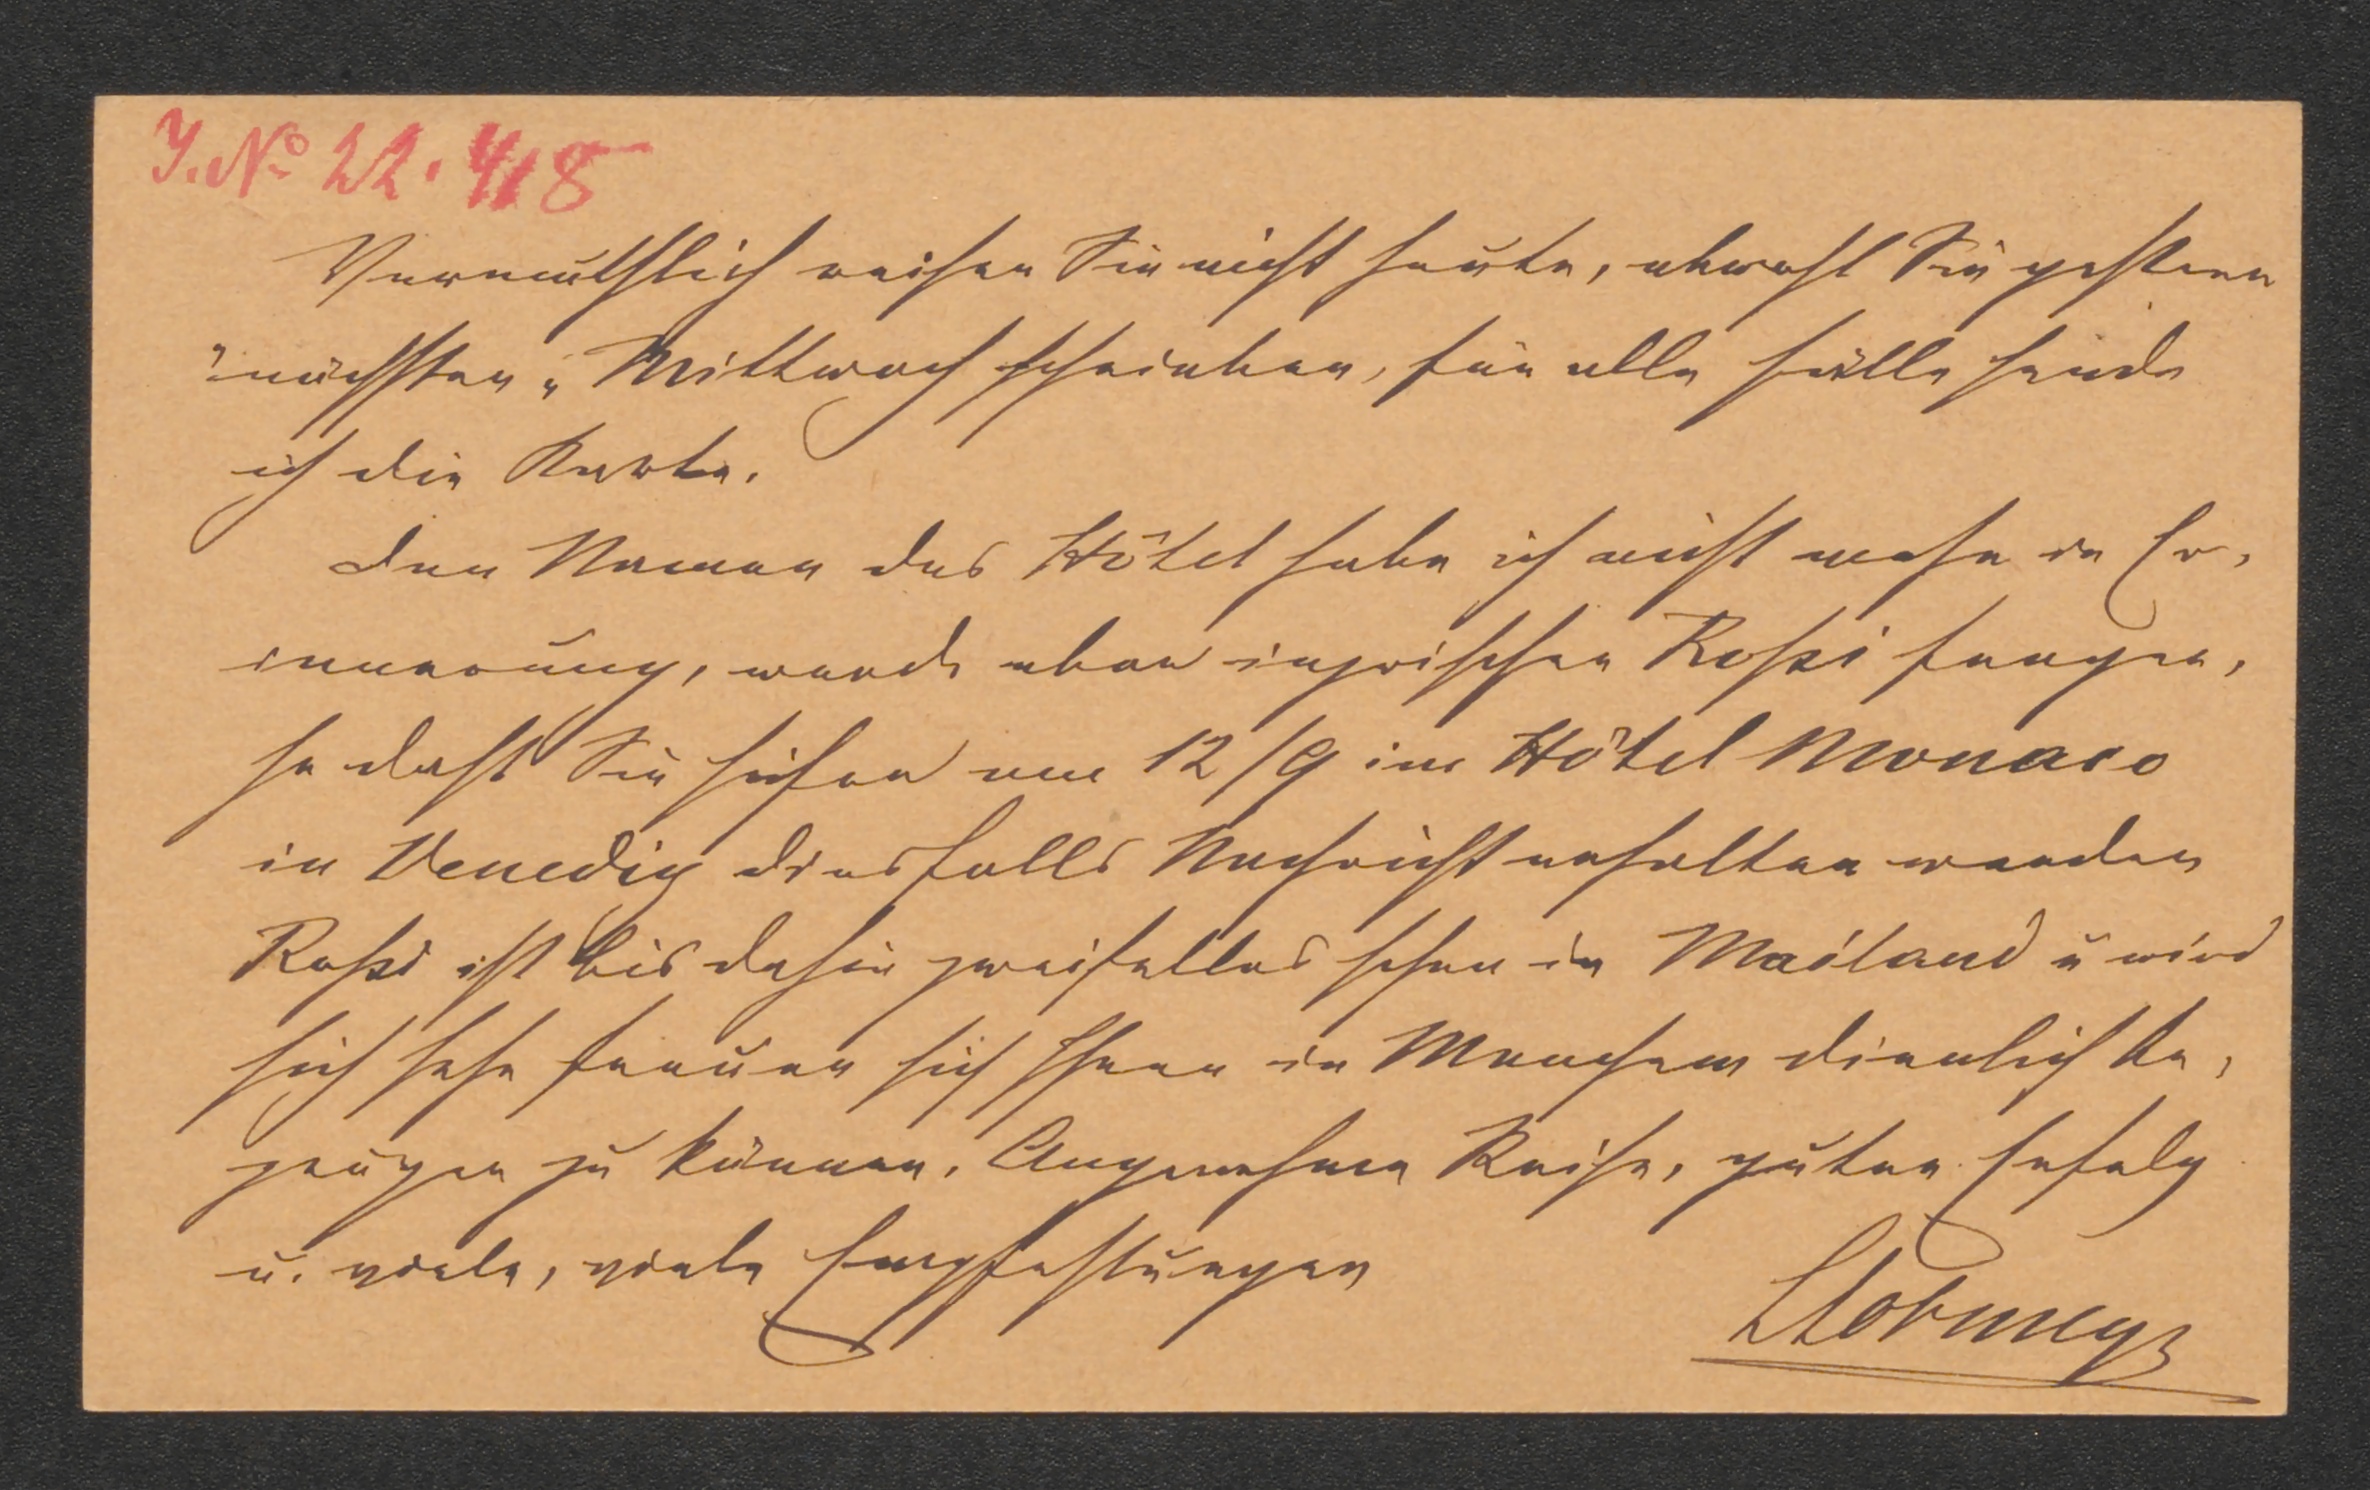 J. No 22.418
Vermuthlich reisen Sie nicht heute, obwohl Sie gestern
"nächsten" Mittwoch schrieben, für alle Fälle sende
ich die Karte.
Den Namen des Hôtel habe ich nicht mehr in Er-
innerung, werde aber inzwischen Rossi fragen,
so daß Sie sicher am 12/9 im Hôtel Monaco
in Venedig diesfalls Nachricht erhalten werden
Rossi ist bis dahin zweifellos schon in Mailand u wird
sich sehr freuen sich Ihnen in Manchem dienlich be-
zeugen zu können. Angenehme Reise, guten Erfolg
u. viele, viele Empfehlungen
LLobmeyr